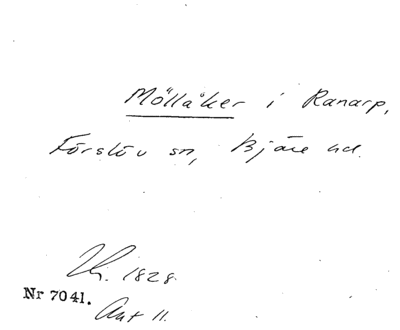 Mölläker i Ranarp,
Förslöv sn, Bjäre hd.
1828.
Nr 7041.
Akt 11.